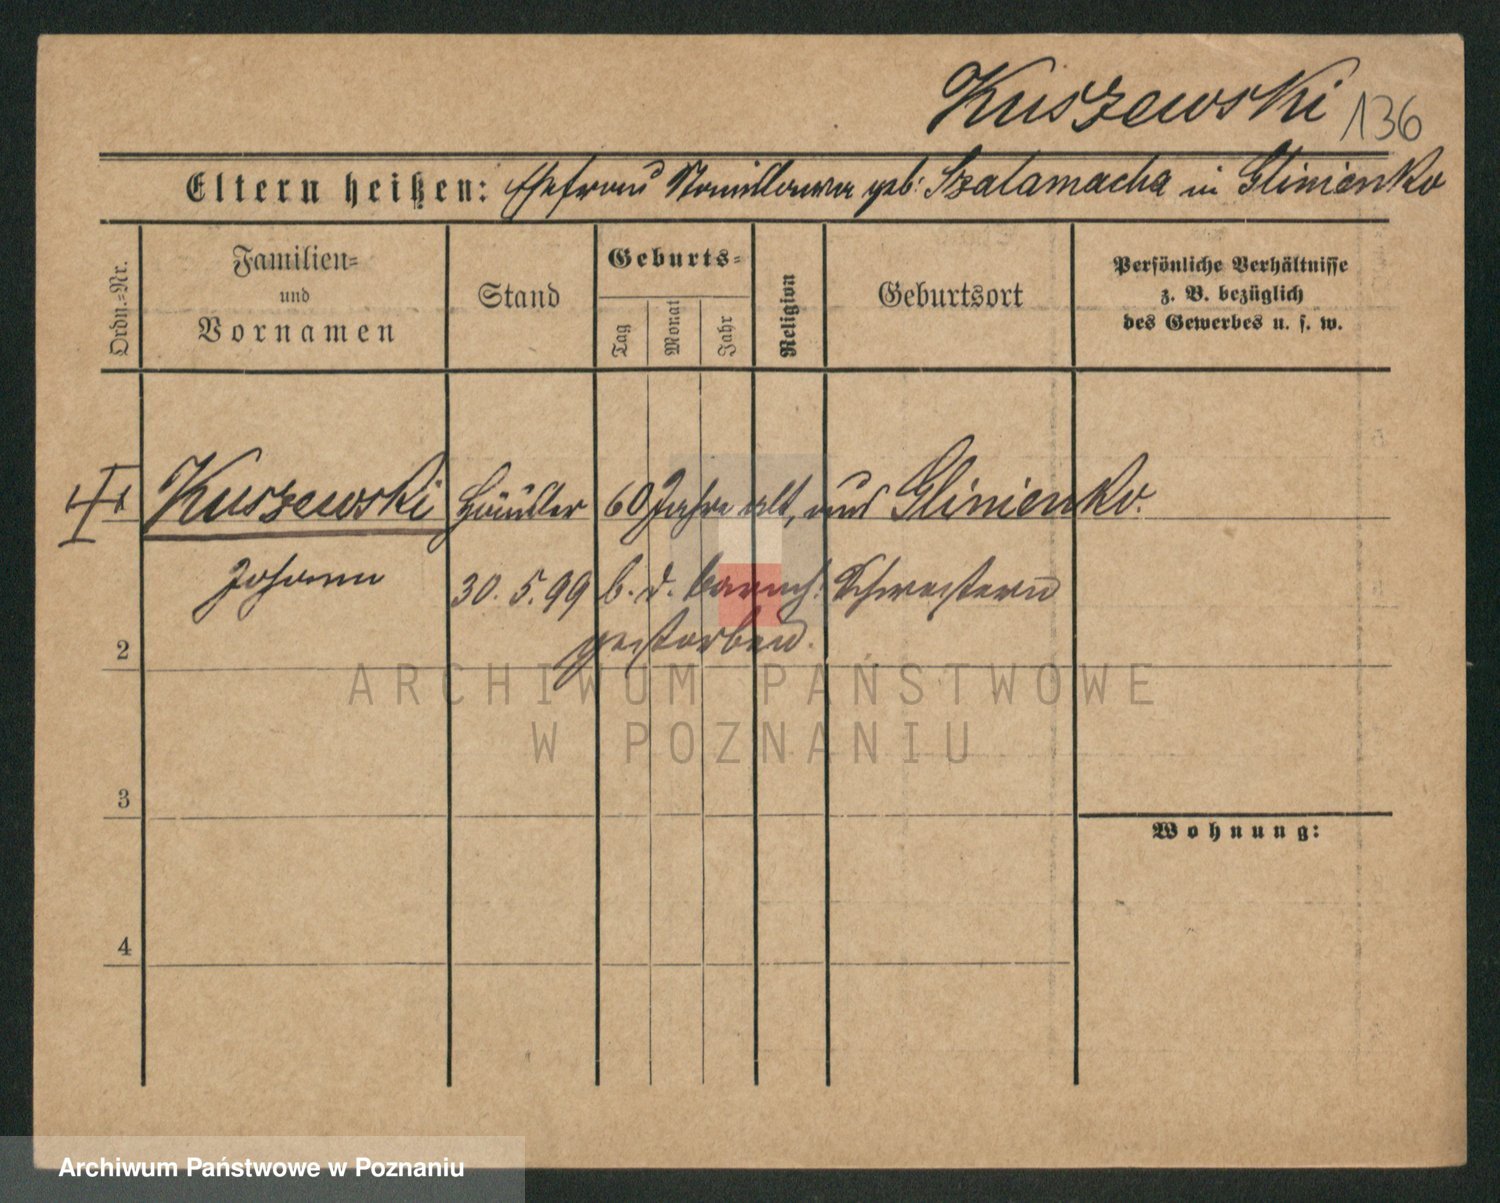 Kuszewski 136
Eltern heißen: Ehefrau Stanislawa geb: Szalamacha in Glinienko
Ordn.-Nr.
Familien-
und
Vornamen
Stand
Geburts-
Tag
Monat
Jahr
Religion
Geburtsort
Persönliche Verhältnisse
z. B. bezüglich
des Gewerbes u. s. w.
Kuszewski Häusler 60 Jahre alt, aus Glinienko.
Johann 30. 5. 99 b. d. barmh. Schwestern
gestorben.
2
3
4
Wohnung:
ARCHIWUM PAŃSTWOWE
W POZNANIU
Archiwum Państwowe w Poznaniu